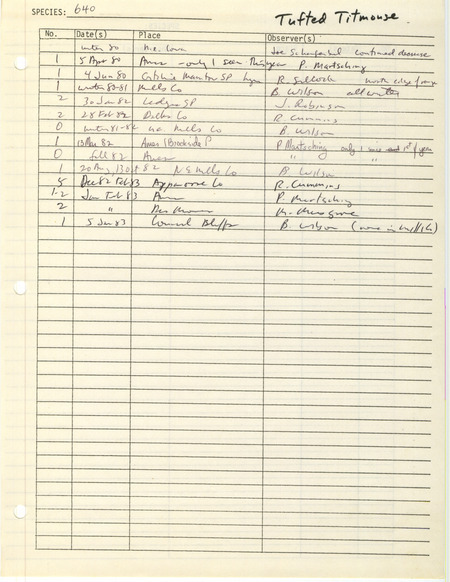 SPECIES: 640 Tufted Titmouse
No. Date(s) Place Observer(s)
winter 80 n.e. Iowa Joe continued decrease
1 5 Apr 80 Ames - only 1 seen this year P. Martsching
1 4 Jun 80 SP R. range
1 winter 80-81 Mills Co B. Wilson all winter
2 30 Jan 82 Ledges SP J. Robinson
2 28 Feb 82 Dallas Co R. Cummins
0 winter 81-82 Mills Co B. Wilson
1 13 Mar 82 Ames (Brookside P P Martsching only 1 1st of year
0 fall 82 Ames " "
1 20 Aug, 13 Oct 82 NE Mills Co B. Wilson
5 Dec 82 Feb 83 Appanoose Co R. Cummins
1-2 Jan Feb 83 Ames P. Martsching
2 " Des Moines
1 5 Jan 83 Council Bluffs B. Wilson (none in Mills Co)